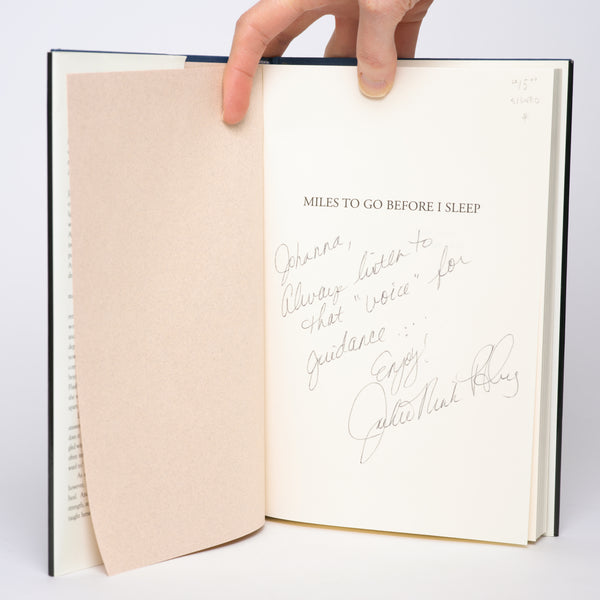 "15"
SIGNED
MILES TO GO BEFORE I SLEEP
Johanna,
Always listen to
that "voice" for
guidance . . . .
Enjoy!
Jackie Nink Pflug